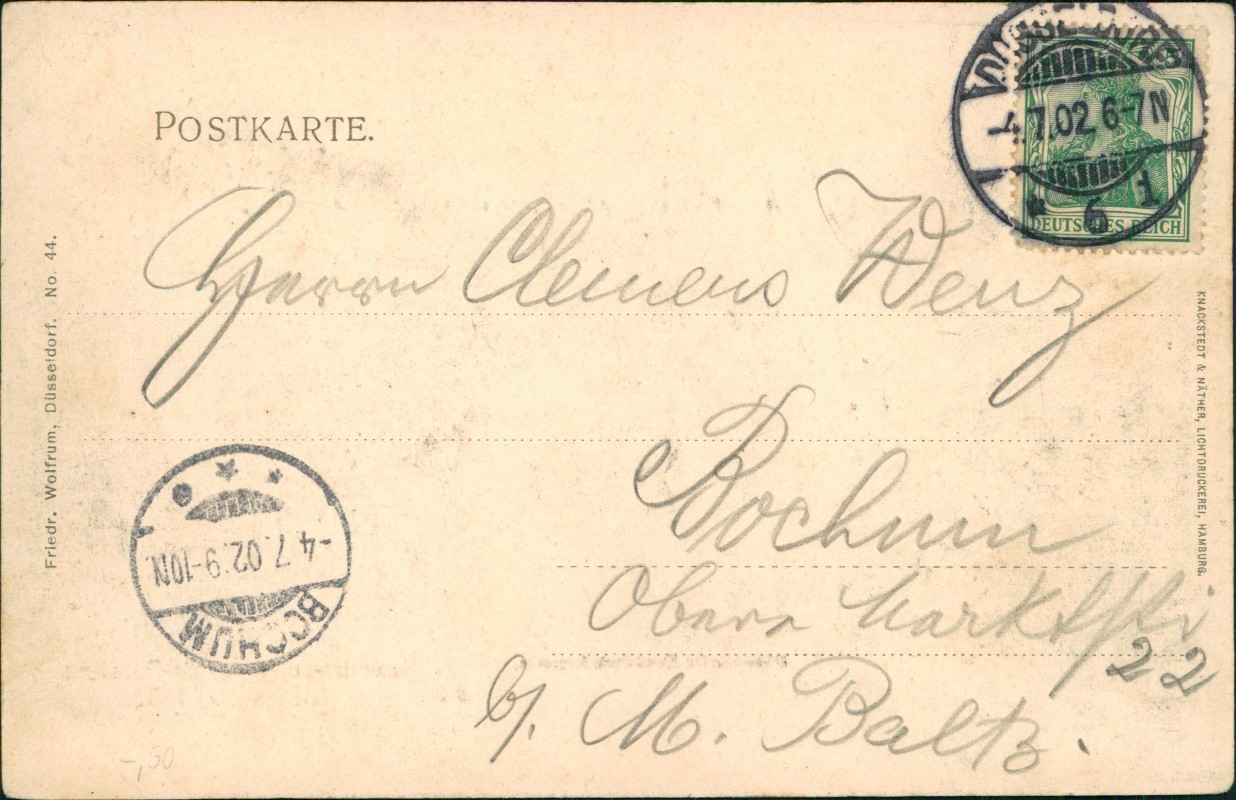 POSTKARTE.
DÜSSELDORF
4.7.02 6-7N
* 6 1
DEUTSCHES REICH
Herrn Clemens Wenz
Bochum
Obere Marktstr
22
b/. M. Baltz.
Friedr. Wolfrum, Düsseldorf. No. 44.
KNACKSTEDT & NÄTHER, LICHTDRUCKEREI, HAMBURG.
BOCHUM
-4.7.02.9-10N.
-,50